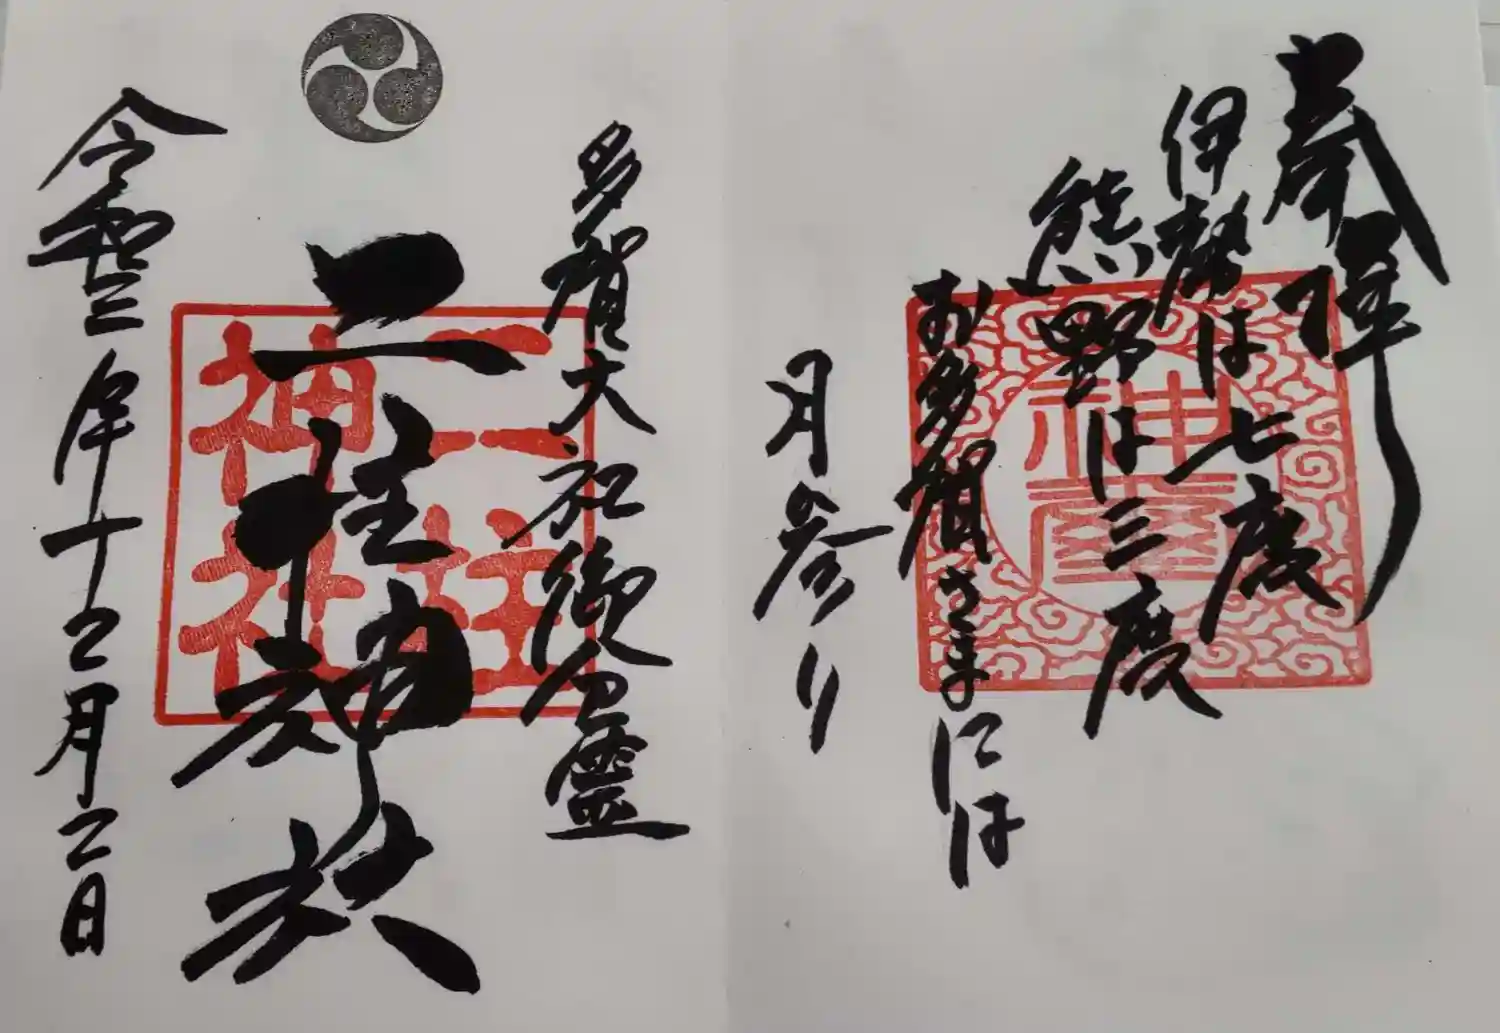 奉拝
伊勢は七度
熊野は三度
お多賀さまには
月参り
多賀大社御分霊
二柱神社
二柱
神社
令和三年十二月二日